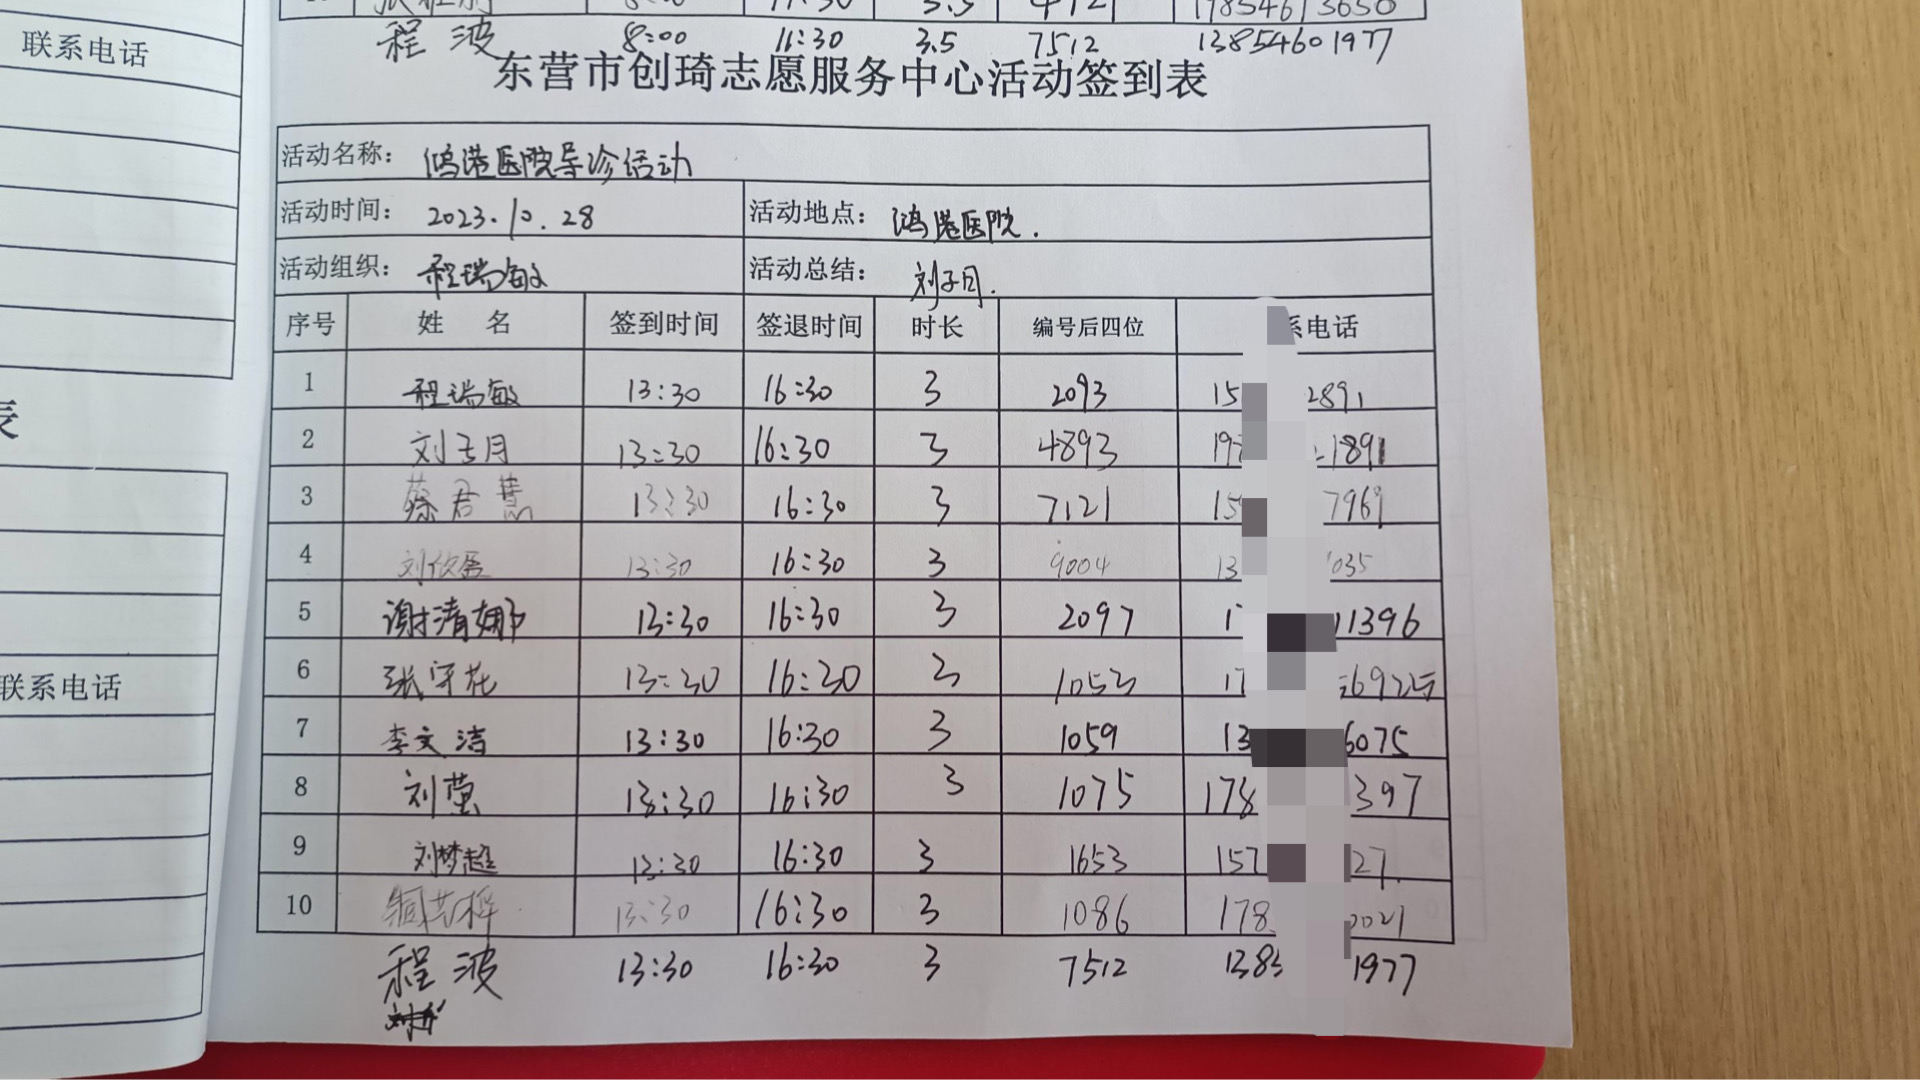 联系电话
程波 8:00 11:30 3.5 7512 13854601977
东营市创琦志愿服务中心活动签到表
活动名称: 鸿港医院导诊活动
活动时间: 2023.10.28 活动地点: 鸿港医院.
活动组织: 程瑞敏 活动总结: 刘子月.
序号 姓 名 签到时间 签退时间 时长 编号后四位 系电话
1 程瑞敏 13:30 16:30 3 2093 15 2891
2 刘子月 13:30 16:30 3 4893 1891
3 蔡君慧 13:30 16:30 3 7121 15 7969
4 刘欣 13:30 16:30 3 9004 13 035
5 谢清娜 13:30 16:30 3 2097 1 11396
6 张守花 13:30 16:30 3 1053 17 6925
7 李文洁 13:30 16:30 3 1059 13 6075
8 刘萤 13:30 16:30 3 1075 178 397
9 刘梦超 13:30 16:30 3 1653 157 27
10 13:30 16:30 3 1086 178 0021
程波 13:30 16:30 3 7512 1385 1977
表
联系电话